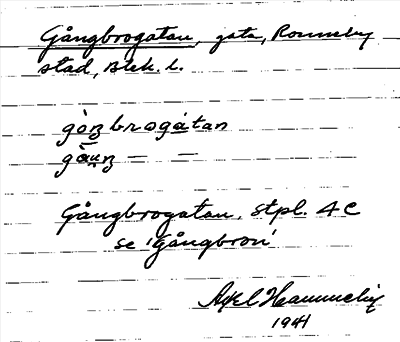 Gångbrogatan, gata, Ronneby
stad, Blek. l.
gòŋbrogátan
gåuŋ — —
Gångbrogatan, stpl. 4 C
se 'Gångbron'
Axel
1941